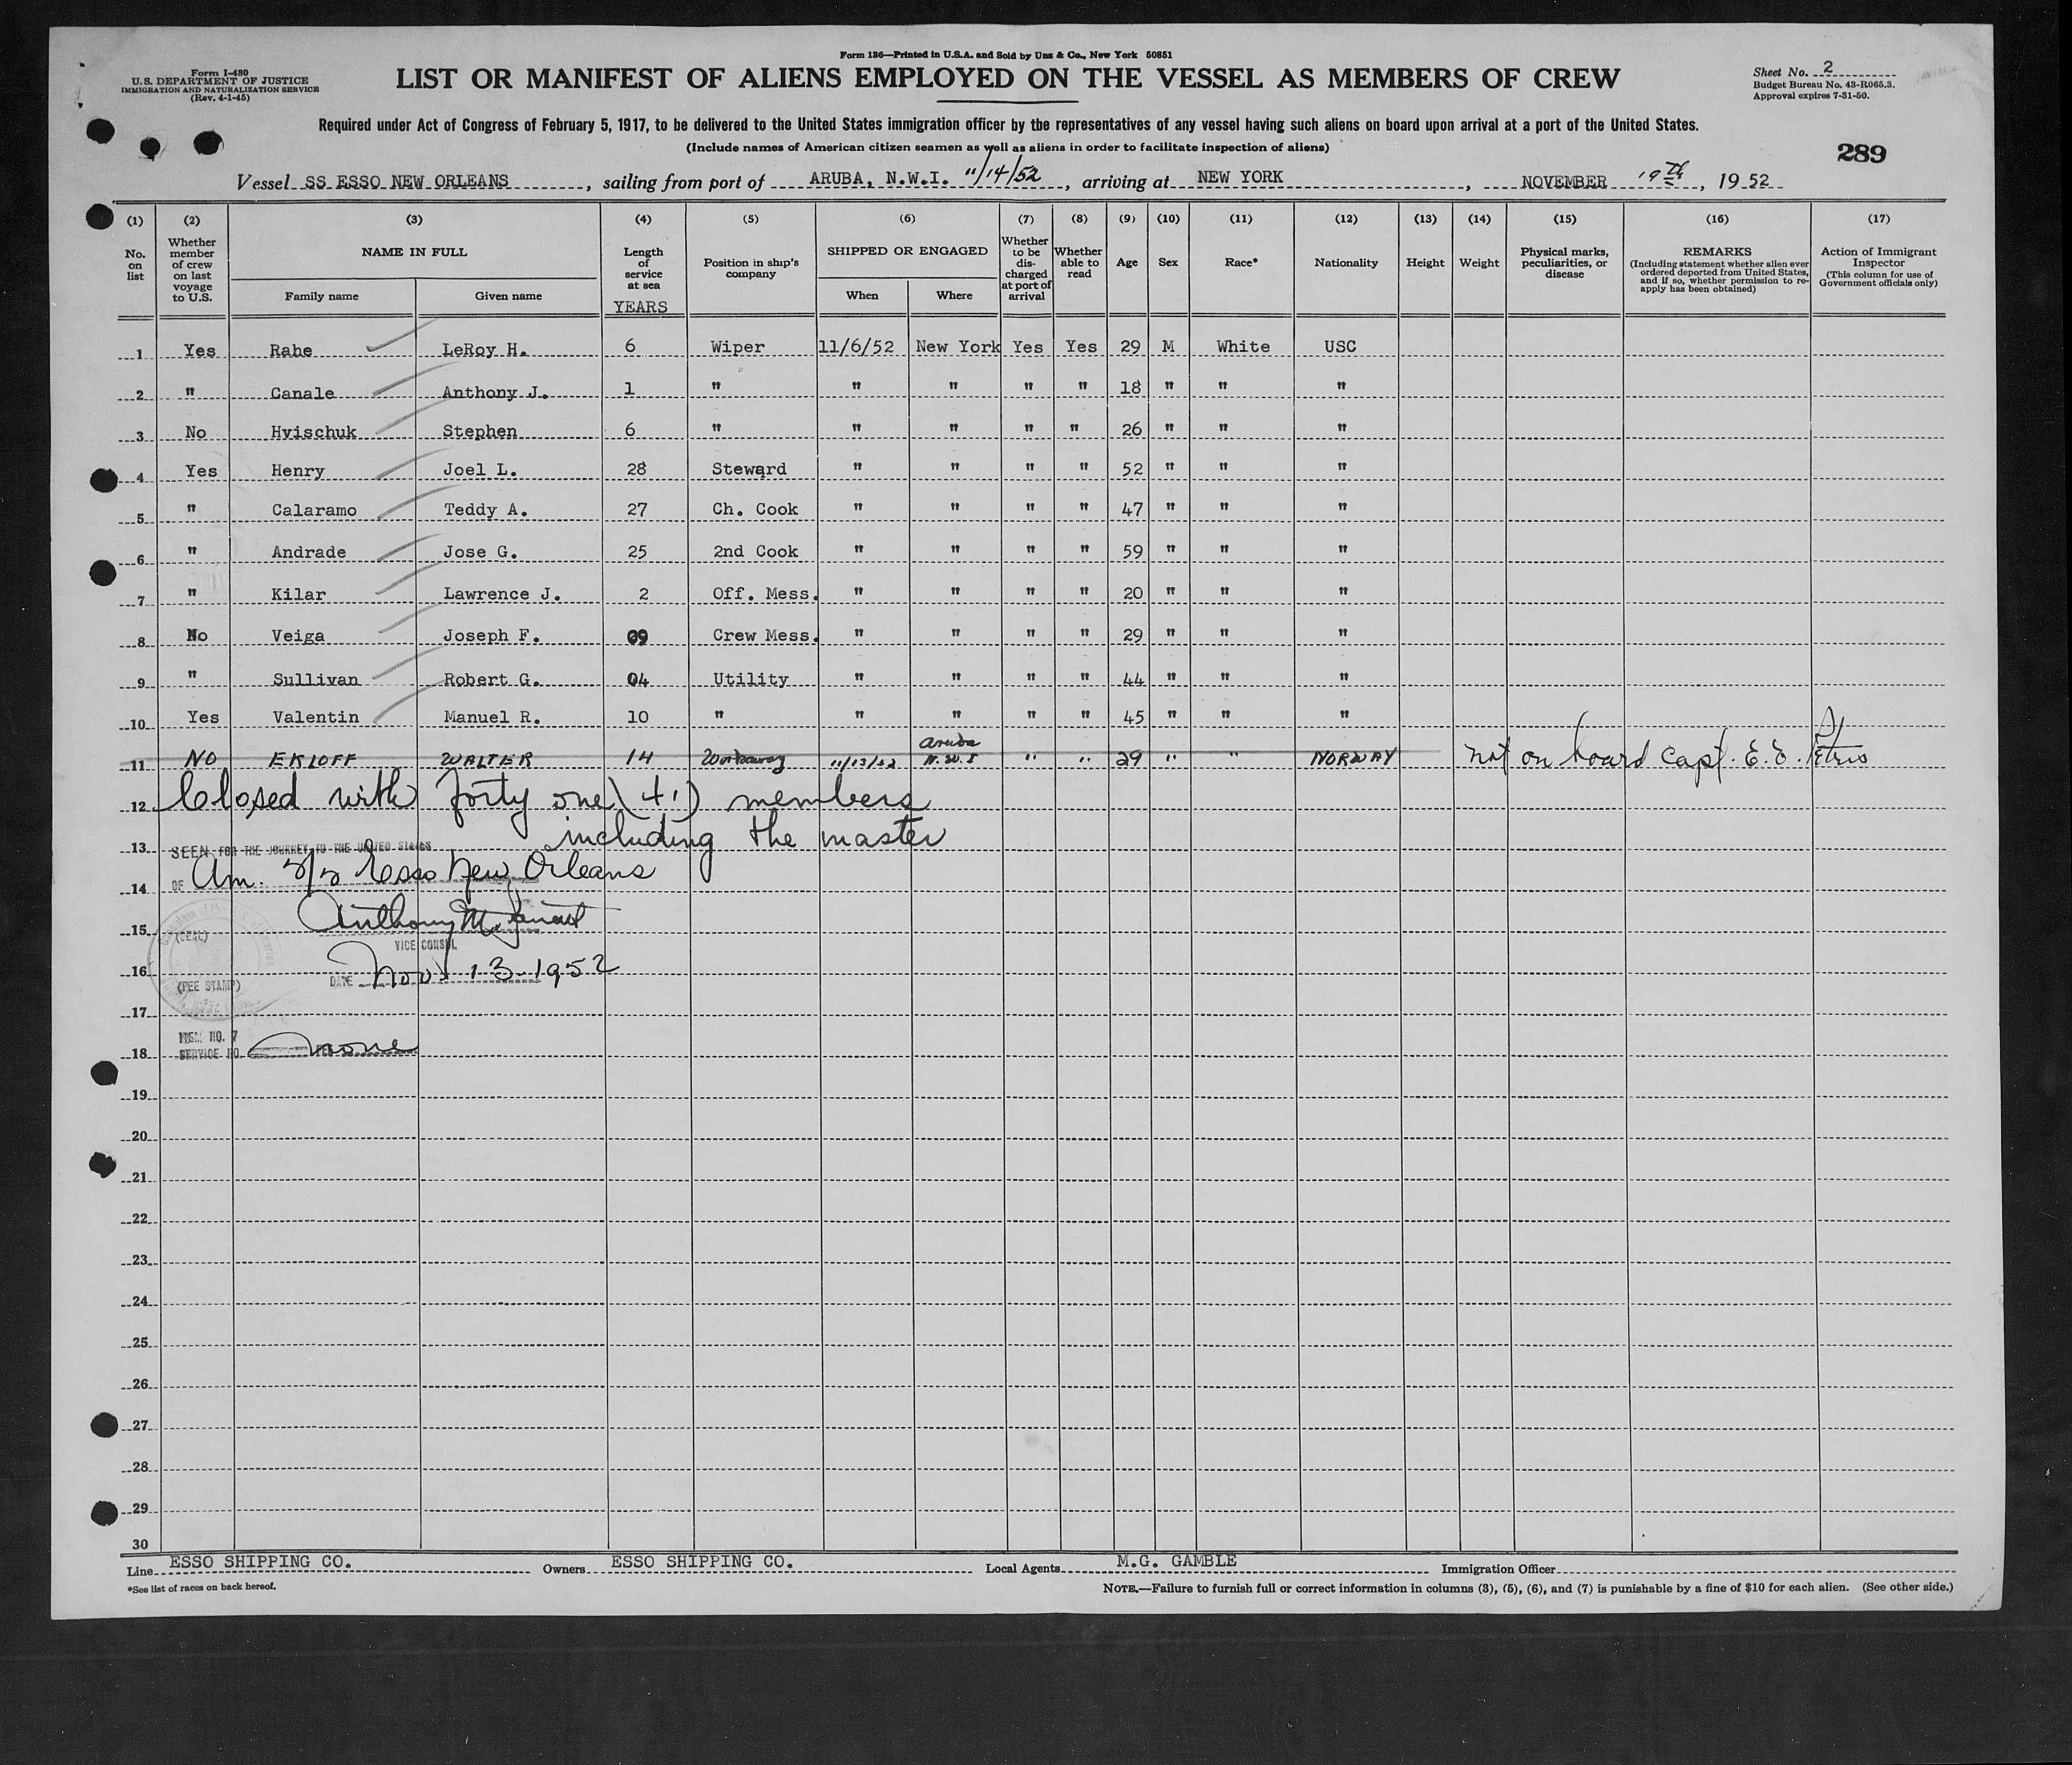 Form 136—Printed in U.S.A. and Sold by Unz & Co., New York 50851
Form I-480
U.S. DEPARTMENT OF JUSTICE
IMMIGRATION AND NATURALIZATION SERVICE
(Rev. 4-1-45)
LIST OR MANIFEST OF ALIENS EMPLOYED ON THE VESSEL AS MEMBERS OF CREW
Sheet No. 2
Budget Bureau No. 43-R065.3.
Approval expires 7-31-50.
Required under Act of Congress of February 5, 1917, to be delivered to the United States immigration officer by the representatives of any vessel having such aliens on board upon arrival at a port of the United States.
(Include names of American citizen seamen as well as aliens in order to facilitate inspection of aliens)
289
Vessel SS ESSO NEW ORLEANS, sailing from port of ARUBA, N.W.I. 11/14/52, arriving at NEW YORK, NOVEMBER 19th, 1952
(1) (2) (3) (4) (5) (6) (7) (8) (9) (10) (11) (12) (13) (14) (15) (16) (17)
No. on list
Whether member of crew on last voyage to U.S.
NAME IN FULL
Family name Given name
Length of service at sea
YEARS
Position in ship's company
SHIPPED OR ENGAGED
When Where
Whether to be discharged at port of arrival
Whether able to read
Age
Sex
Race*
Nationality
Height
Weight
Physical marks, peculiarities, or disease
REMARKS
(Including statement whether alien ever ordered deported from United States, and if so, whether permission to re-apply has been obtained)
Action of Immigrant Inspector
(This column for use of Government officials only)
1 Yes Rahe LeRoy H. 6 Wiper 11/6/52 New York Yes Yes 29 M White USC
2 " Canale Anthony J. 1 " " " " " 18 " " "
3 No Hvischuk Stephen 6 " " " " " 26 " " "
4 Yes Henry Joel L. 28 Steward " " " " 52 " " "
5 " Calaramo Teddy A. 27 Ch. Cook " " " " 47 " " "
6 " Andrade Jose G. 25 2nd Cook " " " " 59 " " "
7 " Kilar Lawrence J. 2 Off. Mess. " " " " 20 " " "
8 No Veiga Joseph F. 09 Crew Mess. " " " " 29 " " "
9 " Sullivan Robert G. 04 Utility " " " " 44 " " "
10 Yes Valentin Manuel R. 10 " " " " " 45 " " "
11 NO EKLOFF WALTER 14 Workaway 11/13/52 Aruba N.W.I " " 29 " " NORWAY not on board Capt. E. E. Petris
12 Closed with forty one (41) members
including the master
13 SEEN FOR THE JOURNEY TO THE UNITED STATES
14 OF Am. S/S Esso New Orleans
15 (SEAL) Anthony M.
VICE CONSUL
16 DATE Nov. 13-1952
(FEE STAMP)
17
ITEM NO. 7
18 SERVICE NO. none
19
20
21
22
23
24
25
26
27
28
29
30
Line ESSO SHIPPING CO. Owners ESSO SHIPPING CO. Local Agents M.G. GAMBLE Immigration Officer
*See list of races on back hereof.
NOTE.—Failure to furnish full or correct information in columns (3), (5), (6), and (7) is punishable by a fine of $10 for each alien. (See other side.)